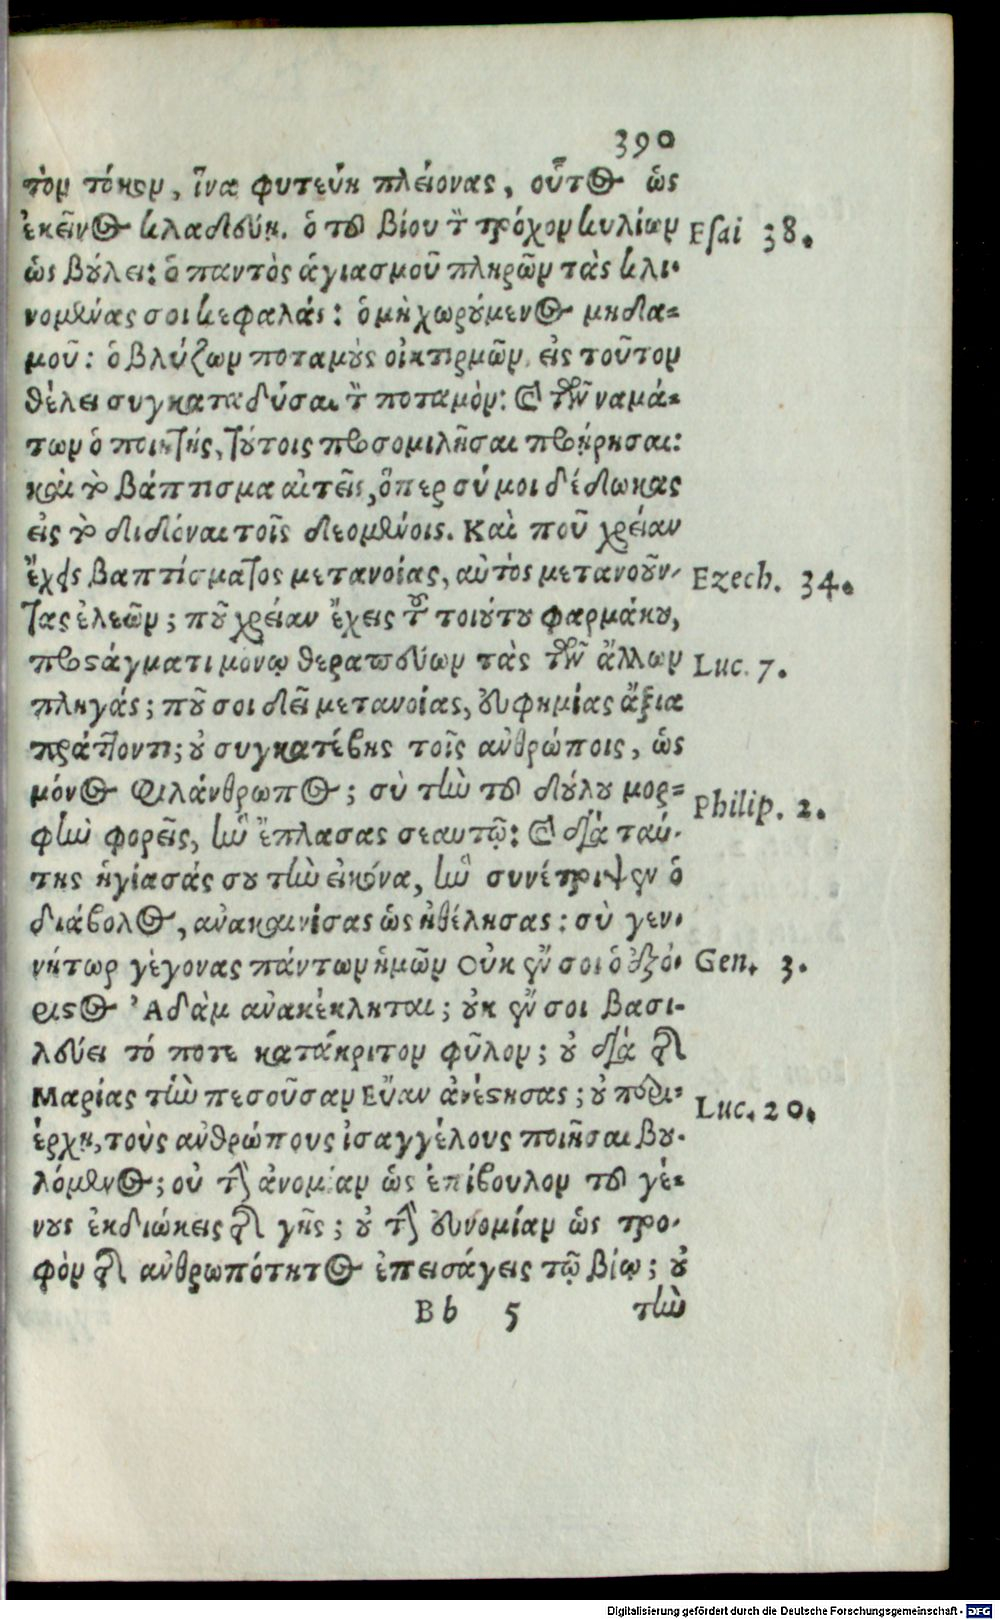 390
τὸν τόκον, ἵνα φυτεύῃ πλείονας, οὗτος ὡς
ἐκεῖνος κλαδεύῃ. ὁ τοῦ βίου τὸν τρόχον κυλίων
Esai 38.
ὡς βούλει: ὁ παντὸς ἁγιασμοῦ πληρῶν τὰς κλι-
νομένας σοι κεφαλάς: ὁ μὴ χωρούμενος μηδα-
μοῦ: ὁ βλύζων ποταμοὺς οἰκτιρμῶν, εἰς τοῦτον
θέλει συγκαταδύσαι τὸν ποταμὸν: καὶ τῶν ναμά-
των ὁ ποιητής, τούτοις προσομιλῆσαι προῄρησαι:
καὶ τὸ βάπτισμα αἰτεῖς, ὅπερ σύ μοι δέδωκας
εἰς τὸ διδόναι τοῖς δεομένοις. Καὶ ποῦ χρείαν
ἔχεις βαπτίσματος μετανοίας, αὐτὸς μετανοοῦν-
Ezech. 34.
τας ἐλεῶν; ποῦ χρείαν ἔχεις τοῦ τοιούτου φαρμάκου,
προςάγματι μόνῳ θεραπεύων τὰς τῶν ἄλλων
Luc. 7.
πληγάς; ποῦ σοι δεῖ μετανοίας, εὐφημίας ἄξια
πράττοντι; οὐ συγκατέβης τοῖς ἀνθρώποις, ὡς
μόνος φιλάνθρωπος; σὺ τὴν τοῦ δούλου μορ-
Philip. 2.
φὴν φορεῖς, ἣν ἔπλασας σεαυτῷ: καὶ διὰ ταύ-
της ἡγίασάς σου τὴν εἰκόνα, ἣν συνέτριψεν ὁ
διάβολος, ἀνακαινίσας ὡς ἠθέλησας: σὺ γεν-
νήτωρ γέγονας πάντων ἡμῶν Οὐκ ἔν σοι ὁ ἐξό-
Gen. 3.
ριστος Ἀδὰμ ἀνακέκληται; οὐκ ἔν σοι βασι-
λεύει τό ποτε κατάκριτον φῦλον; οὐ διὰ τῆς
Μαρίας τὴν πεσοῦσαν Εὔαν ἀνέστησας; οὐ περι-
Luc. 20.
έρχῃ, τοὺς ἀνθρώπους ἰσαγγέλους ποιῆσαι βου-
λόμενος; οὐ τὴν ἀνομίαν ὡς ἐπίβουλον τοῦ γέ-
νους ἐκδιώκεις τῆς γῆς; οὐ τὴν εὐνομίαν ὡς τρο-
φὸν τῆς ἀνθρωπότητος ἐπεισάγεις τῷ βίῳ; οὐ
Bb 5 τὴν
Digitalisierung gefördert durch die Deutsche Forschungsgemeinschaft - DFG